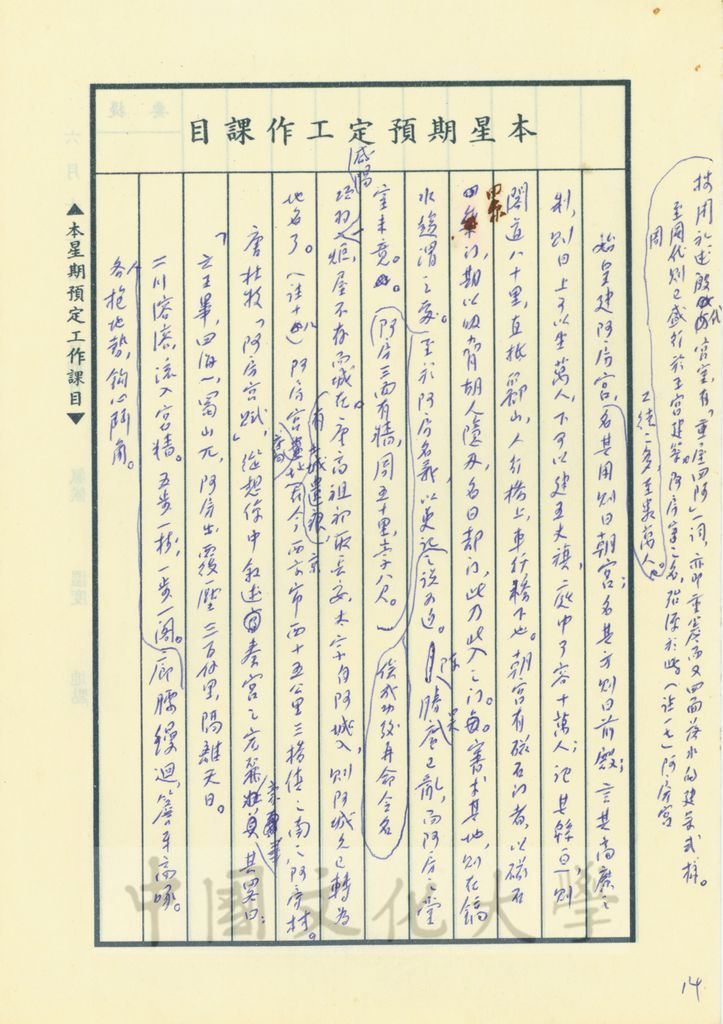 本星期預定工作課目
採用於述殷代宮室,有「重屋四阿」一詞,亦即重簷而又四面落水的建築式樣。
至周代則已盛行於王宮建築。阿房宮之名,殆源於此(註一七)阿房宮
工徒之多,至數萬人。
始皇建阿房宮,名其用則曰朝宮;名其方則曰前殿;言其高廣之
制,則曰上可以坐萬人,下可以建五丈旗,庭中可容十萬人;記其緜亘,則
閣道八十里,直抵酈山,人行橋上,車行橋下也。朝宮有磁石門者,以磁石
為門,期以吸脅胡人隱刃,名曰却門,此乃此入之門。審求其地,則在鎬
水趨渭之處。至於阿房名義,以史記之說為近。
室未竟。(阿房三面有牆,周五十里,高八尺。)俟成功後再命令名
咸陽
項羽一炬,屋不存而城在。唐高祖初取長安,太宗自阿城入,則阿城久已轉為
地名了。(註十八)阿房宮有土城遺痕,在今西京市西十五公里三橋鎮之南八阿房村。
唐杜牧「阿房宮賦」,從想像中敘述秦宮之宏麗其畧曰:
「六王畢,四海一,蜀山兀,阿房出,覆壓三百餘里,隔離天日。
二川溶溶,流入宮牆。五步一樓,一步一閣。廊腰縵迴,簷牙高啄。
各抱地勢,鈎心鬪角。
▲本星期預定工作課目▼
中國文化大學
14